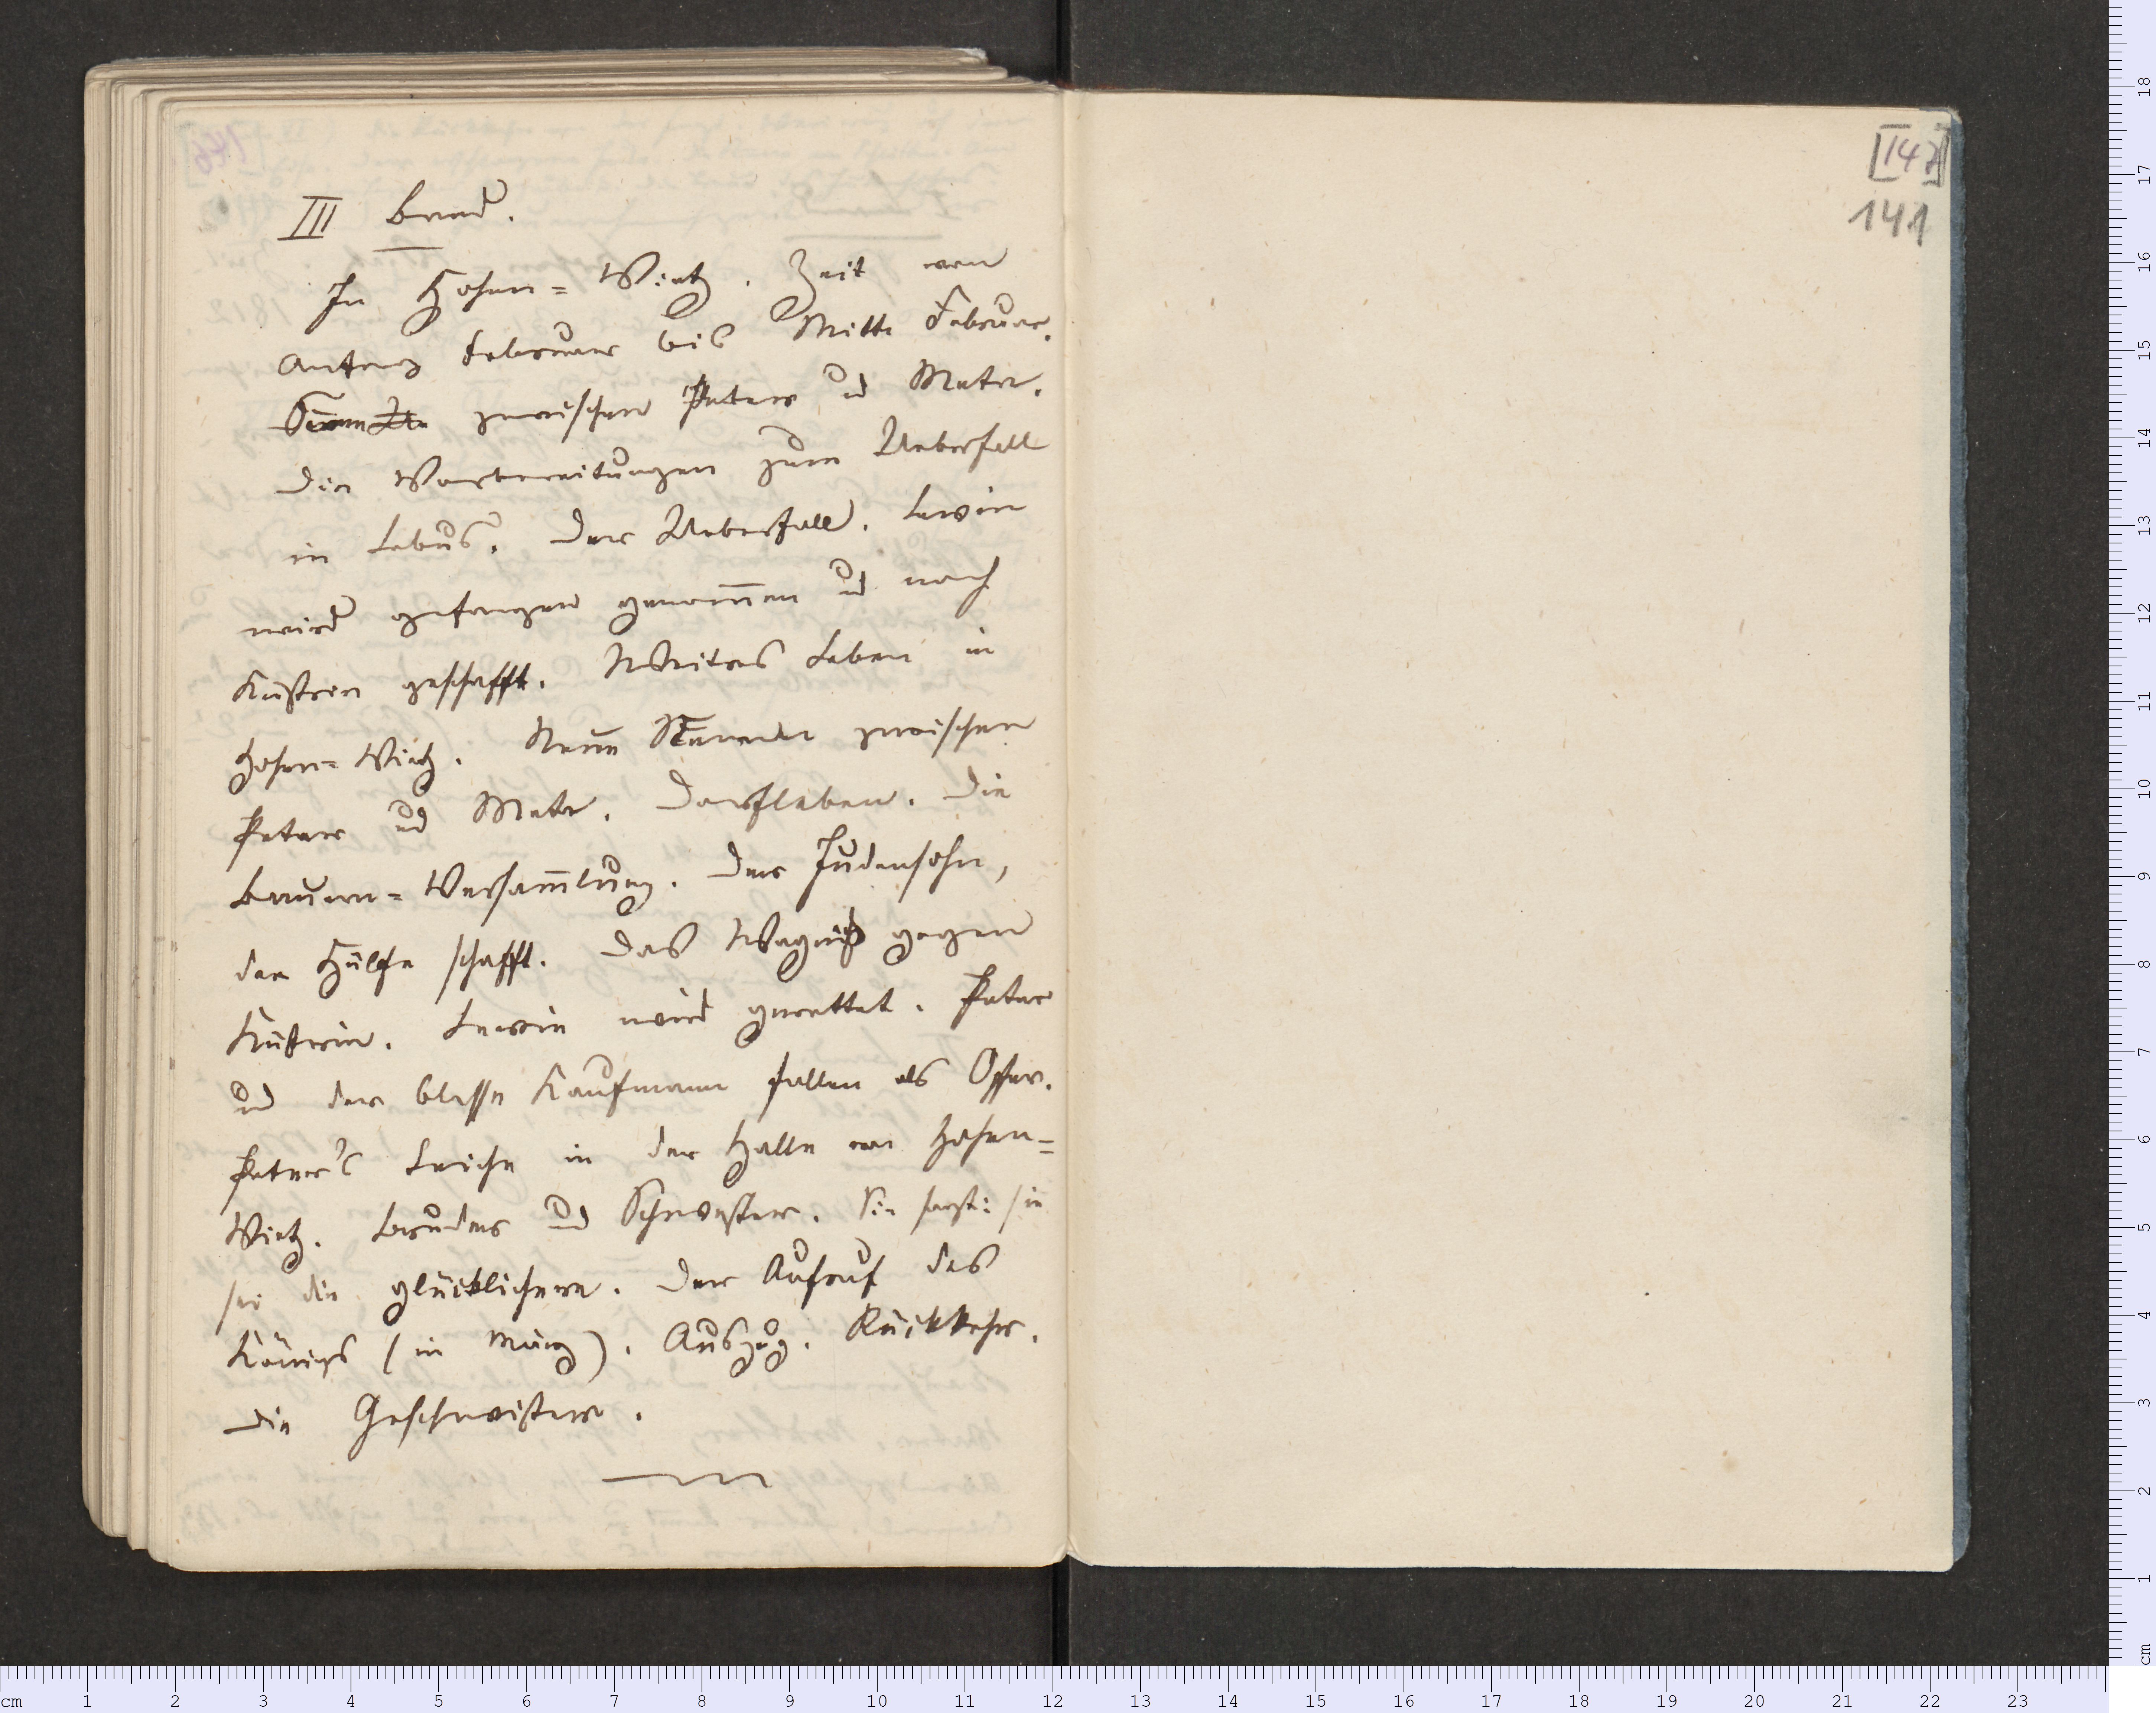 III Band.
In Hohen-Wietz. Zeit von
Anfang Februar bis Mitte Februar.
zwischen Peter ud Mete.
Die Vorbereitungen zum Ueberfall
in Lebus. Der Ueberfall. Lewin
wird gefangen genom̅en ud nach
Küstrin geschafft. Weitres Leben in
Hohen-Wietz. Neue Scenen zwischen
Peter ud Mete. Dorfleben. Die
Bauern-Versam̅lung. Der Judensohn,
der Hülfe schafft. Das Wagniß gegen
Küstrin. Lewin wird gerettet. Peter
ud der blasse Kaufmann fallen als Opfer.
Peter's Leiche in der Halle von Hohen-
Wietz. Bruder ud Schwester. Sie sagt: sie
sei die glücklichere. Der Aufruf des
Königs (in März). Auszug. Rückkehr.
Die Geschwister.
[147]
141